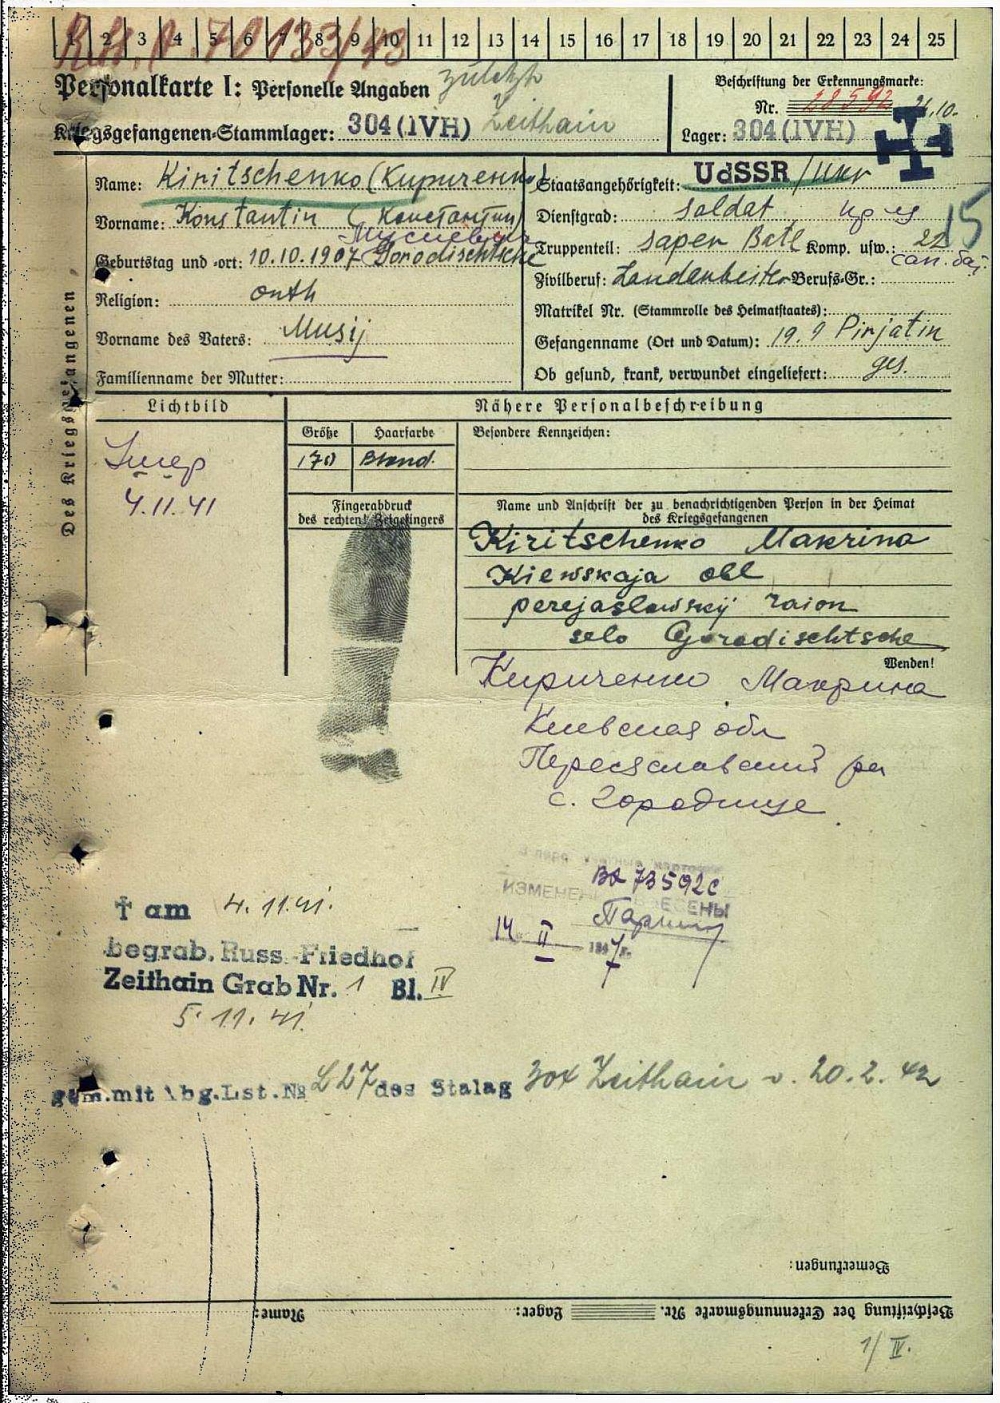 1 2 3 4 5 6 7 8 9 10 11 12 13 14 15 16 17 18 19 20 21 22 23 24 25
Personalkarte I: Personelle Angaben
zuletzt
Zeithain
Kriegsgefangenen-Stammlager: 304 (IVH)
Beschriftung der Erkennungsmarke:
Nr. 28592
Lager: 304 (IVH)
Des Kriegsgefangenen
Name: Kiritschenko (Кириченко)
Vorname: Konstantin (Константин)
Мусиевич
Geburtstag und -ort: 10.10.1907 Gorodischtsche
Religion: orth
Vorname des Vaters: Musij
Familienname der Mutter:
Staatsangehörigkeit: UdSSR / Ukr
Dienstgrad: Soldat
Truppenteil: Saper Batl Komp. usw.: 22
сап. бат
Zivilberuf: Landarbeiter Berufs-Gr.:
Matrikel Nr. (Stammrolle des Heimatstaates):
Gefangenname (Ort und Datum): 19.9 Pirjatin
Ob gesund, krank, verwundet eingeliefert: ges.
Lichtbild
Умер
4.11.41
Nähere Personalbeschreibung
Größe Haarfarbe
170 Blond.
Besondere Kennzeichen:
Fingerabdruck
des rechten Zeigefingers
Name und Anschrift der zu benachrichtigenden Person in der Heimat
des Kriegsgefangenen
Kiritschenko Makrina
Kiewskaja obl
perejaslawskij raion
selo Gorodischtsche
Wenden!
Кириченко Макрина
Киевская обл
Переяславский ра
с. Городище
ИЗМЕНЕНИЯ ВНЕСЕНЫ
14 II 1947
† am 4.11.41.
begrab. Russ. Friedhof
Zeithain Grab Nr. 1 Bl. IV
5.11.41
gem. mit Abg. Lst. № L27 des Stalag 304 Zeithain v. 20.2.42
Bemerkungen:
Beschriftung der Erkennungsmarke Nr. Lager: Name:
1/IV.